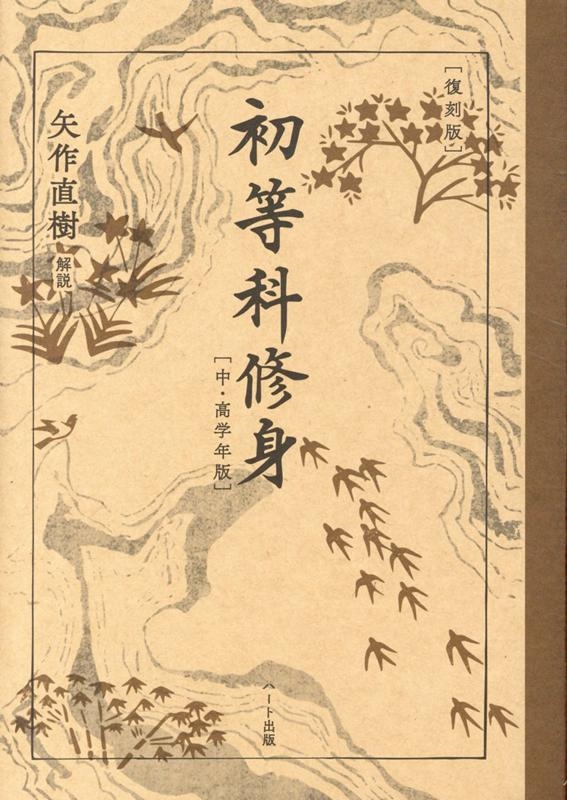 [復刻版]
初等科修身
[中・高学年版]
矢作直樹 解説
ハート出版